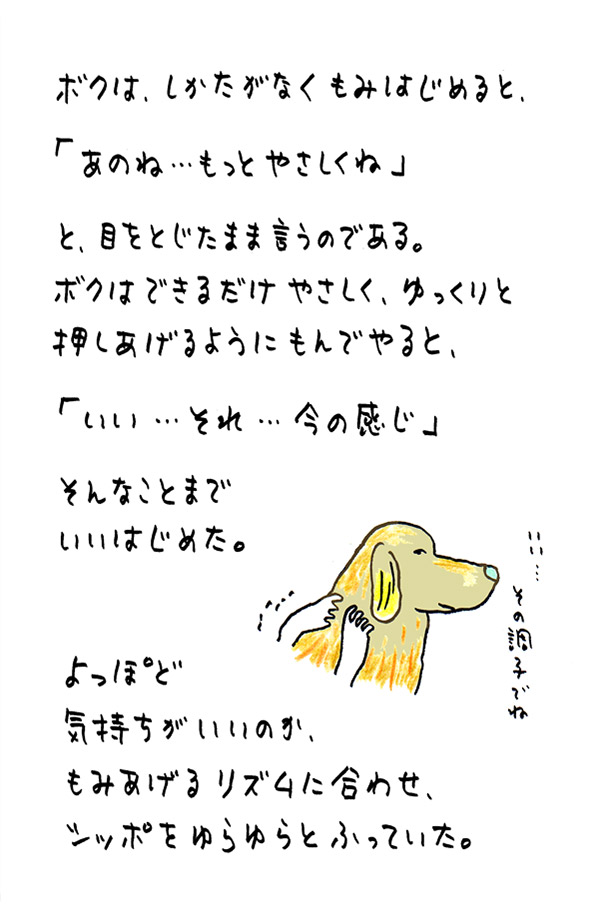 ボクは、しかたがなく もみはじめると、
「あのね…もっと やさしくね」
と、目をとじたまま言うのである。
ボクは できるだけ やさしく、ゆっくりと
押しあげるように もんでやると、
「いい…それ…今の感じ」
そんなことまで
いいはじめた。
いい…
その調子でね
よっぽど
気持ちがいいのか、
もみあげる リズムに合わせ、
シッポをゆらゆらと ふっていた。